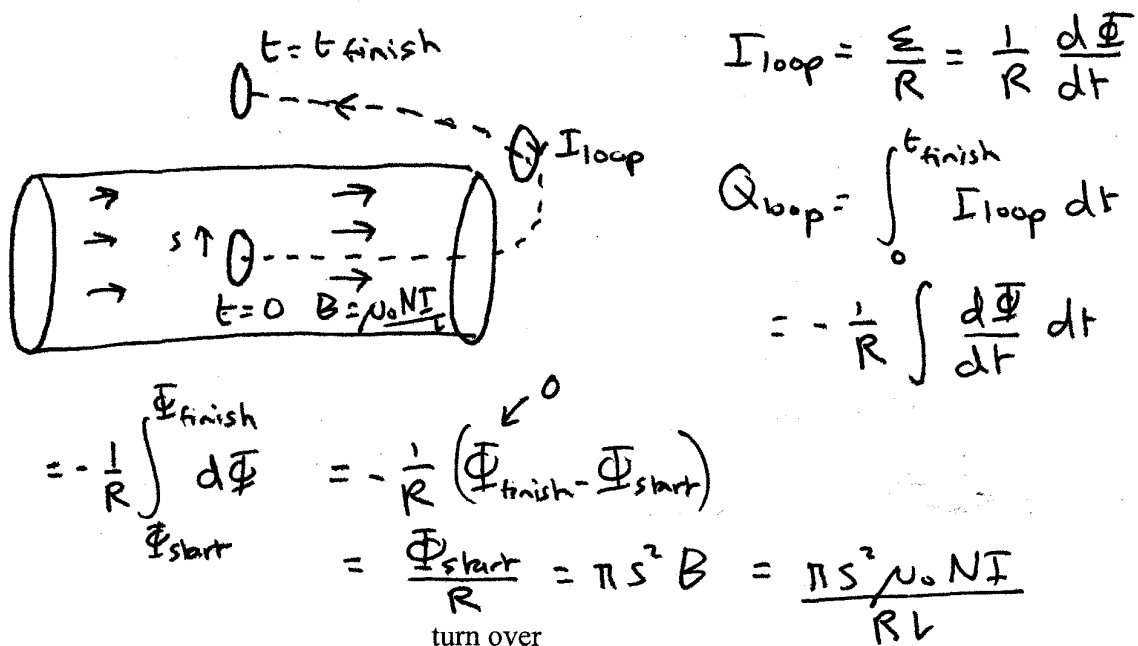 t = t finish
I loop
s ↑
t = 0 B = μ₀NI/L
I loop = ε/R = 1/R dΦ/dt
Q loop = ∫₀^{t finish} I loop dt
= - 1/R ∫ dΦ/dt dt
= - 1/R ∫_{Φ start}^{Φ finish} dΦ = - 1/R (Φ finish - Φ start) ↙ 0
= Φ start/R = π s² B = π s² μ₀ N I / R L
turn over